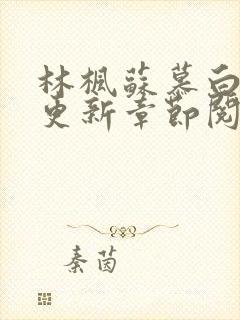 林楓蘇慕白
更新章節閱
秦茵